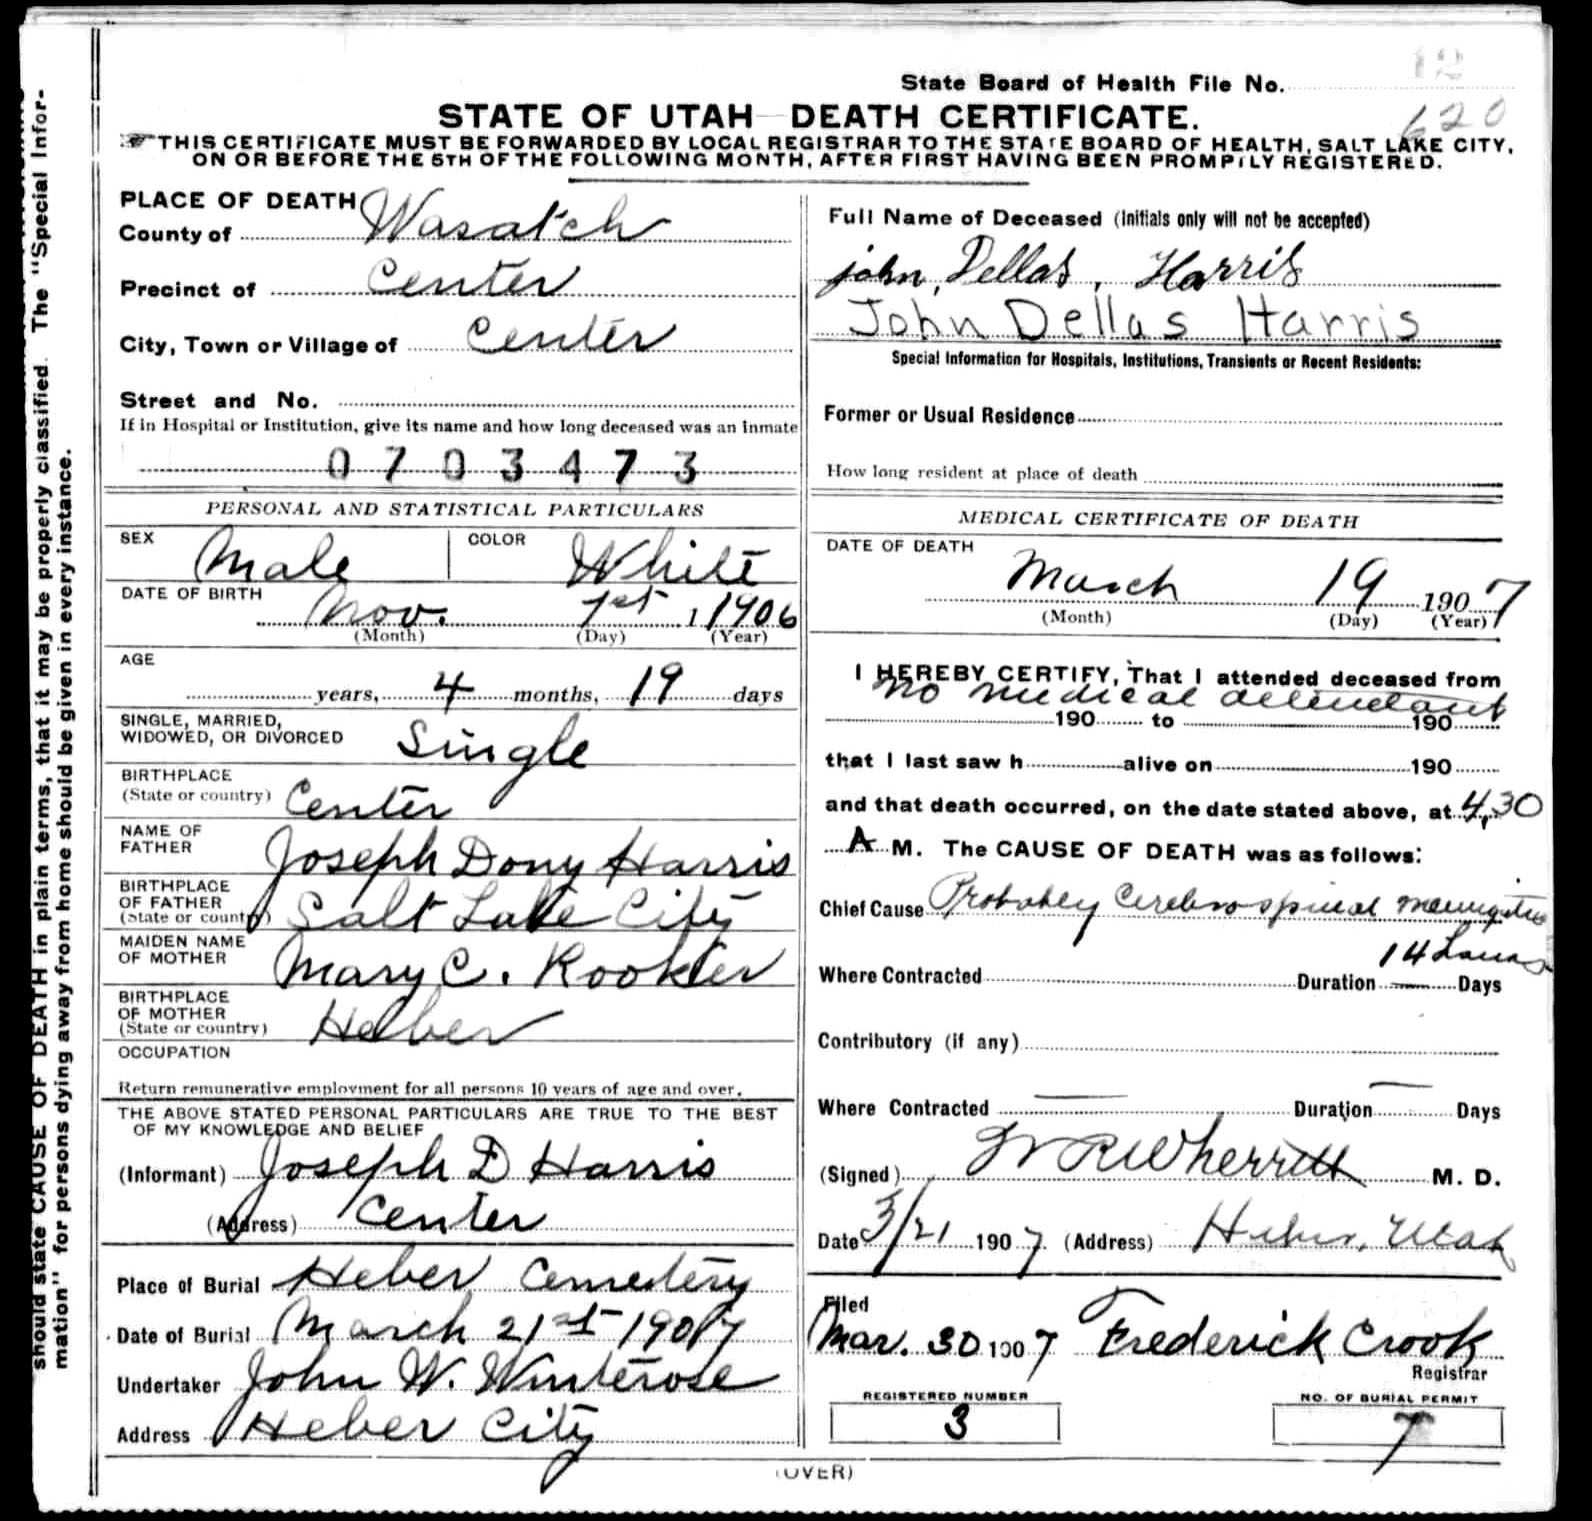 12
State Board of Health File No.
620
STATE OF UTAH—DEATH CERTIFICATE.
THIS CERTIFICATE MUST BE FORWARDED BY LOCAL REGISTRAR TO THE STATE BOARD OF HEALTH, SALT LAKE CITY,
ON OR BEFORE THE 5TH OF THE FOLLOWING MONTH, AFTER FIRST HAVING BEEN PROMPTLY REGISTERED.
should state CAUSE OF DEATH in plain terms, that it may be properly classified. The "Special Infor-
mation" for persons dying away from home should be given in every instance.
PLACE OF DEATH
County of Wasatch
Precinct of Center
City, Town or Village of Center
Street and No.
If in Hospital or Institution, give its name and how long deceased was an inmate
0703473
PERSONAL AND STATISTICAL PARTICULARS
SEX Male COLOR White
DATE OF BIRTH
Nov. 1st 1 1906
(Month) (Day) (Year)
AGE
years, 4 months, 19 days
SINGLE, MARRIED,
WIDOWED, OR DIVORCED Single
BIRTHPLACE
(State or country) Center
NAME OF
FATHER Joseph Dony Harris
BIRTHPLACE
OF FATHER
(State or country) Salt Lake City
MAIDEN NAME
OF MOTHER Mary C. Rooker
BIRTHPLACE
OF MOTHER
(State or country) Heber
OCCUPATION
Return remunerative employment for all persons 10 years of age and over.
THE ABOVE STATED PERSONAL PARTICULARS ARE TRUE TO THE BEST
OF MY KNOWLEDGE AND BELIEF
(Informant) Joseph D Harris
(Address) Center
Place of Burial Heber Cemetery
Date of Burial March 21st 1907
Undertaker John W. Winterose
Address Heber City
Full Name of Deceased (Initials only will not be accepted)
john, Dellas, Harris
John Dellas Harris
Special Information for Hospitals, Institutions, Transients or Recent Residents:
Former or Usual Residence
How long resident at place of death
MEDICAL CERTIFICATE OF DEATH
DATE OF DEATH
March 19 1907
(Month) (Day) (Year)
I HEREBY CERTIFY, That I attended deceased from
no medical attendant
190 to 190
that I last saw h alive on 190
and that death occurred, on the date stated above, at 4,30
A M. The CAUSE OF DEATH was as follows:
Chief Cause Probably Cerebro spinal meningitis
14 hours
Where Contracted Duration — Days
Contributory (if any)
Where Contracted — Duration — Days
(Signed) W R Wherritt M. D.
Date 3/21 1907. (Address) Heber, Utah
Filed
Mar. 30 1907 Frederick Crook
Registrar
REGISTERED NUMBER
3
NO. OF BURIAL PERMIT
7
(OVER)